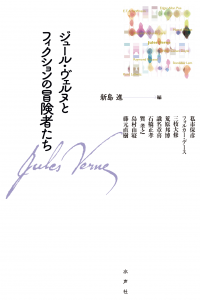 ジュール・ヴェルヌと
フィクションの冒険者たち
新島 進 編
私市保彦
フォルカー・デース
三枝大修
荒原邦博
識名章喜
石橋正孝
巽孝之
島村山寝
藤元直樹
Jules Verne
水声社